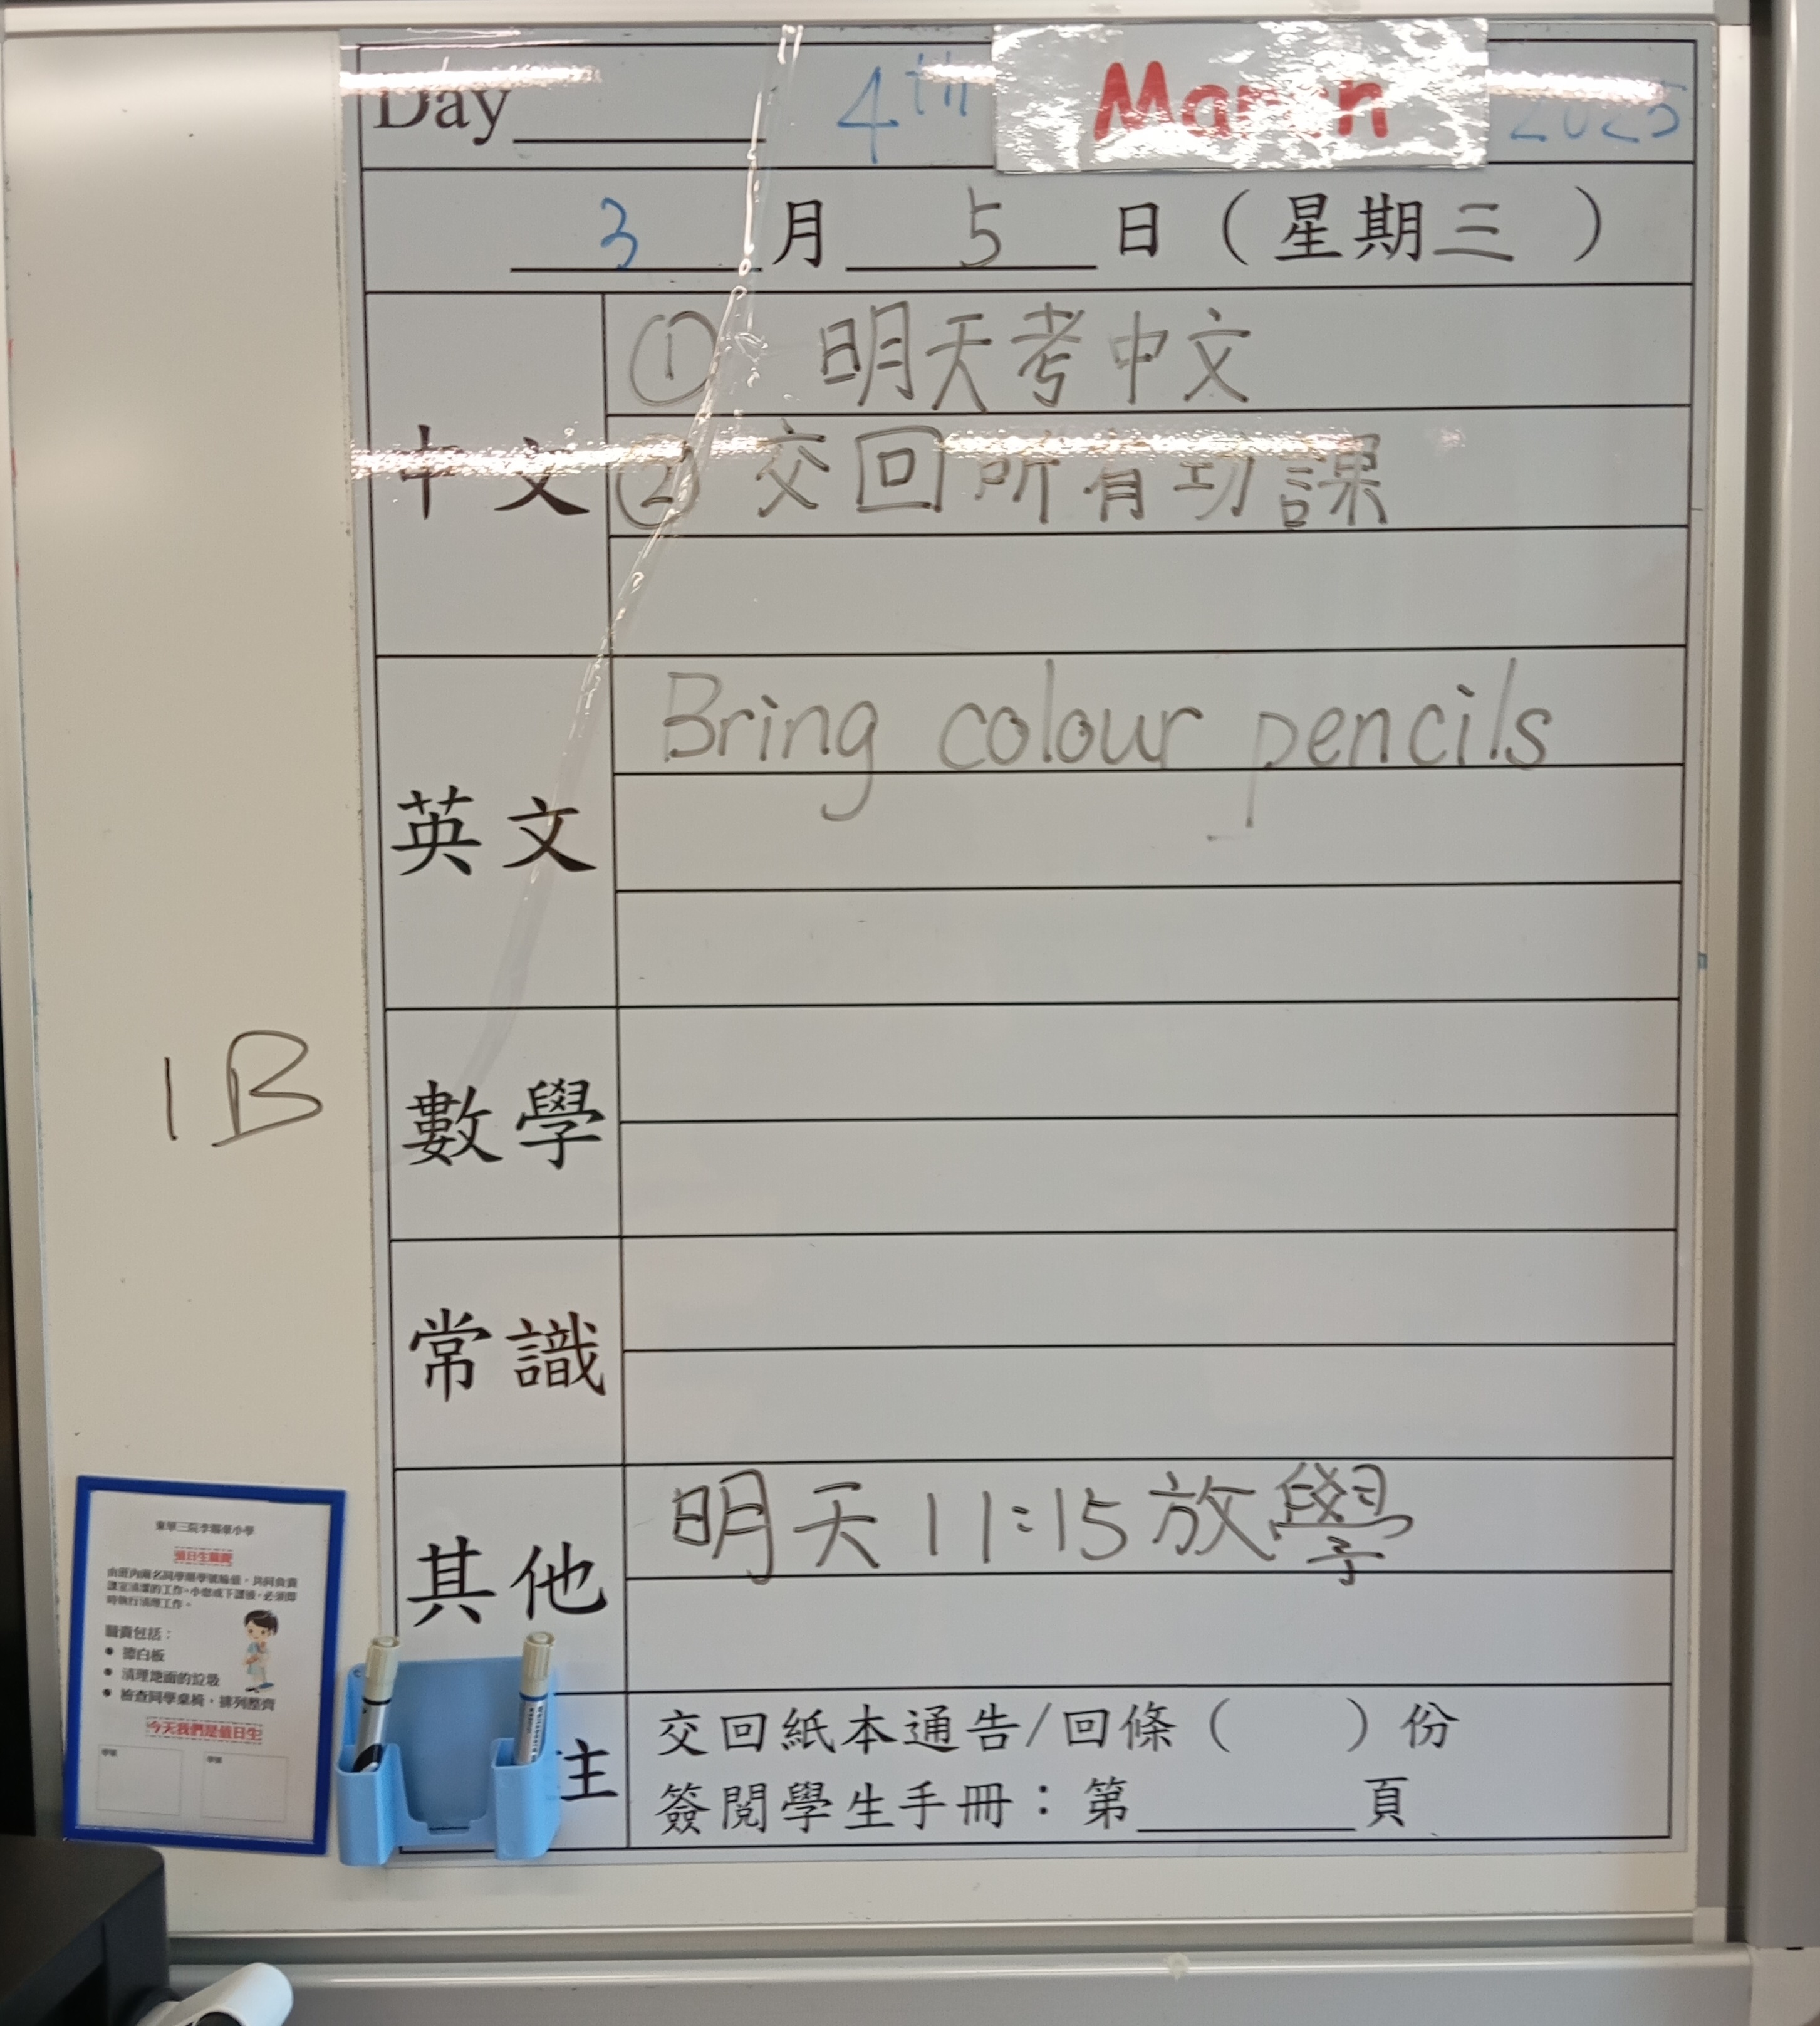 Day 4th March 2025
3 月 5 日 ( 星期三 )
中文
① 明天考中文
② 交回所有功課
英文
Bring colour pencils
數學
1B
常識
其他
明天 11:15 放學
主
交回紙本通告/回條 ( ) 份
簽閱學生手冊：第 頁
值日生職責
職責包括：
• 擦白板
• 清理地面的垃圾
• 檢查同學桌椅，排列整齊
今天我們是值日生
學號 學號